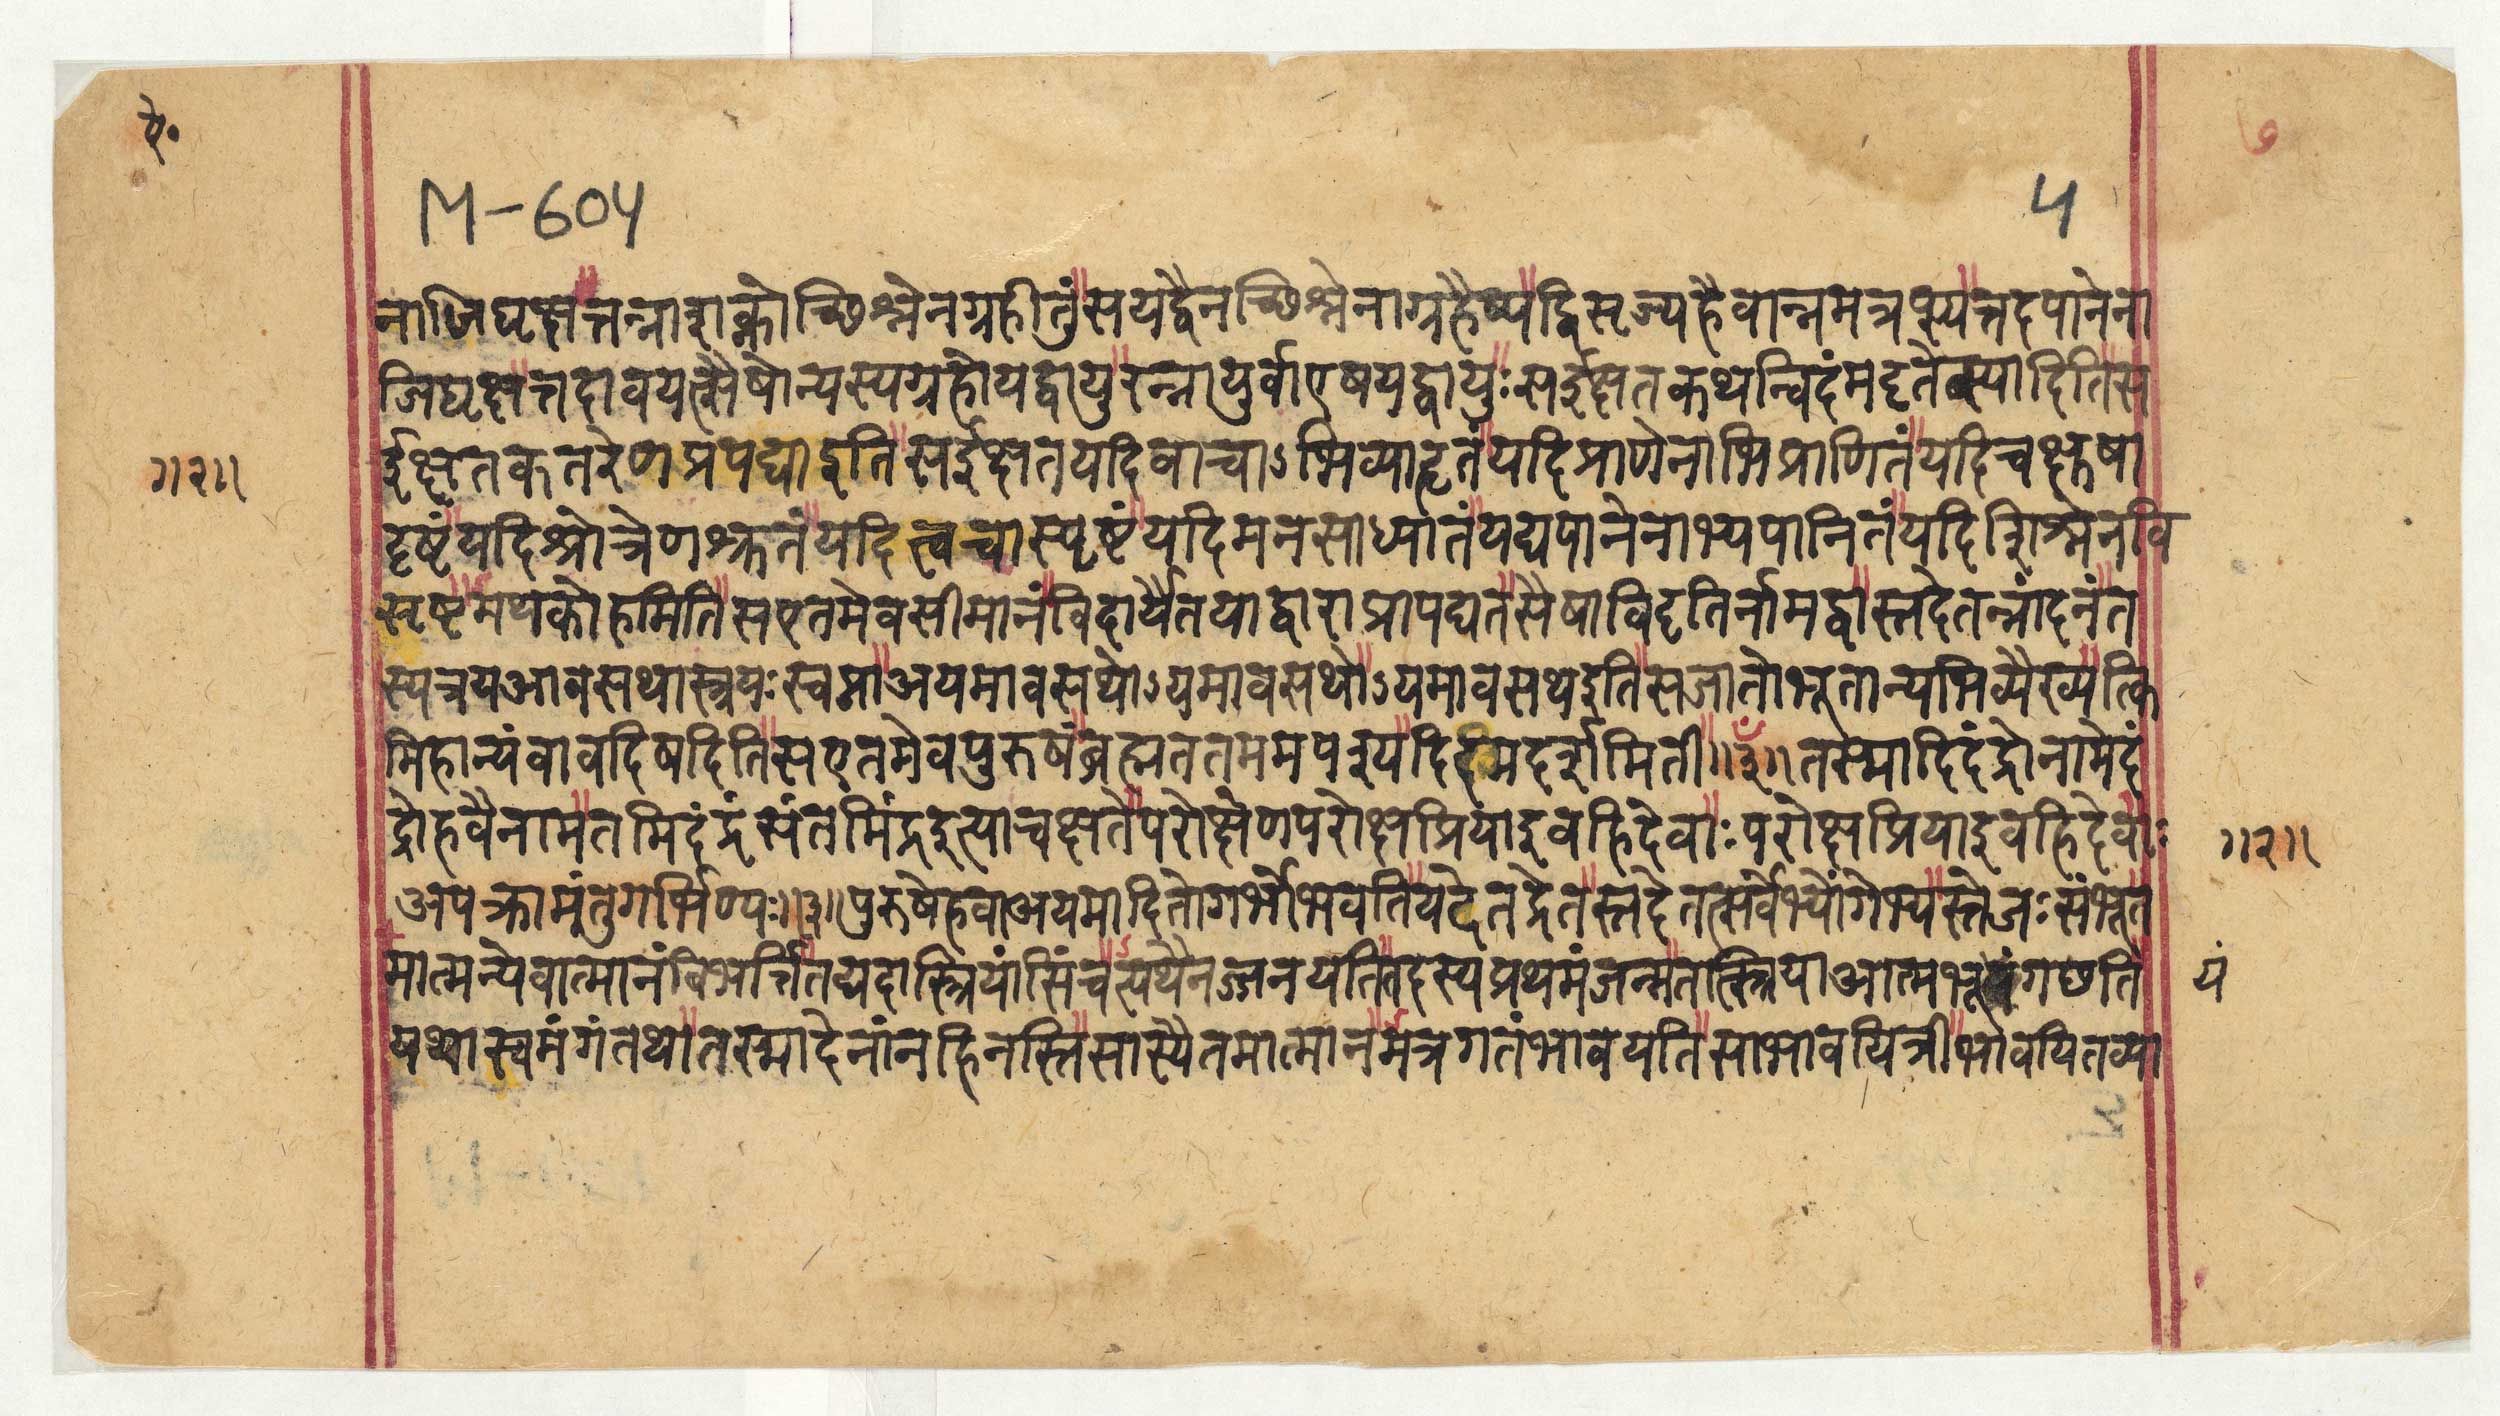 ऐ॰
७
M-604
५
नाजिघृक्षत्तन्नाशक्नोच्छिश्नेनग्रहीतुंसयद्धैनच्छिश्नेनाग्रहैष्यद्विसृज्यहैवान्नमत्रप्स्यत्तदपानेना
जिघृक्षत्तदावयत्सैषोन्यस्यग्रहोयद्वायुरन्नायुर्वाएषयद्वायुःसईक्षतकथन्विदंमदृतेस्यादितिस
ईक्षतकतरेणप्रपद्याइतिसईक्षतयदिवाचाऽभिव्याहृतंयदिप्राणेनाभिप्राणितंयदिचक्षुषा
॥२॥
दृष्टंयदिश्रोत्रेणश्रुतंयदित्वचास्पृष्टंयदिमनसाध्यातंयद्यपानेनाभ्यपानितंयदिशिश्नेनवि
सृष्टमथकोहमितिसएतमेवसीमानंविदार्यैतयाद्वाराप्रापद्यतसैषाविदृतिर्नामद्वास्तदेतन्नांदनंत
स्यत्रयआवसथास्त्रयःस्वप्नाअयमावसथोऽयमावसथोऽयमावसथइतिसजातोभूतान्यभिव्यैख्यत्कि
मिहान्यंवावदिषदितिसएतमेवपुरुषंब्रह्मततममपश्यदिदमदर्शमिती॥३॥तस्मादिदंद्रोनामेदं
द्रोहवैनामतमिदंद्रंसंतमिंद्रइत्याचक्षतेपरोक्षेणपरोक्षप्रियाइवहिदेवाःपरोक्षप्रियाइवहिदेवाः
॥२॥
अपक्रामंतुगर्भिण्यः॥३॥पुरुषेहवाअयमादितोगर्भोभवतियदेतद्रेतस्तदेतत्सर्वेभ्योंगेभ्यस्तेजःसंभूत
मात्मन्येवात्मानंबिभर्त्तितद्यदास्त्रियांसिंचत्यथैनज्जनयतितदस्यप्रथमंजन्मतत्स्त्रियाआत्मभूयंगछति
यं
यथास्वमंगंतथातस्मादेनांनहिनस्तिसास्यैतमात्मानमत्रगतंभावयतिसाभावयित्रीभावयितव्या